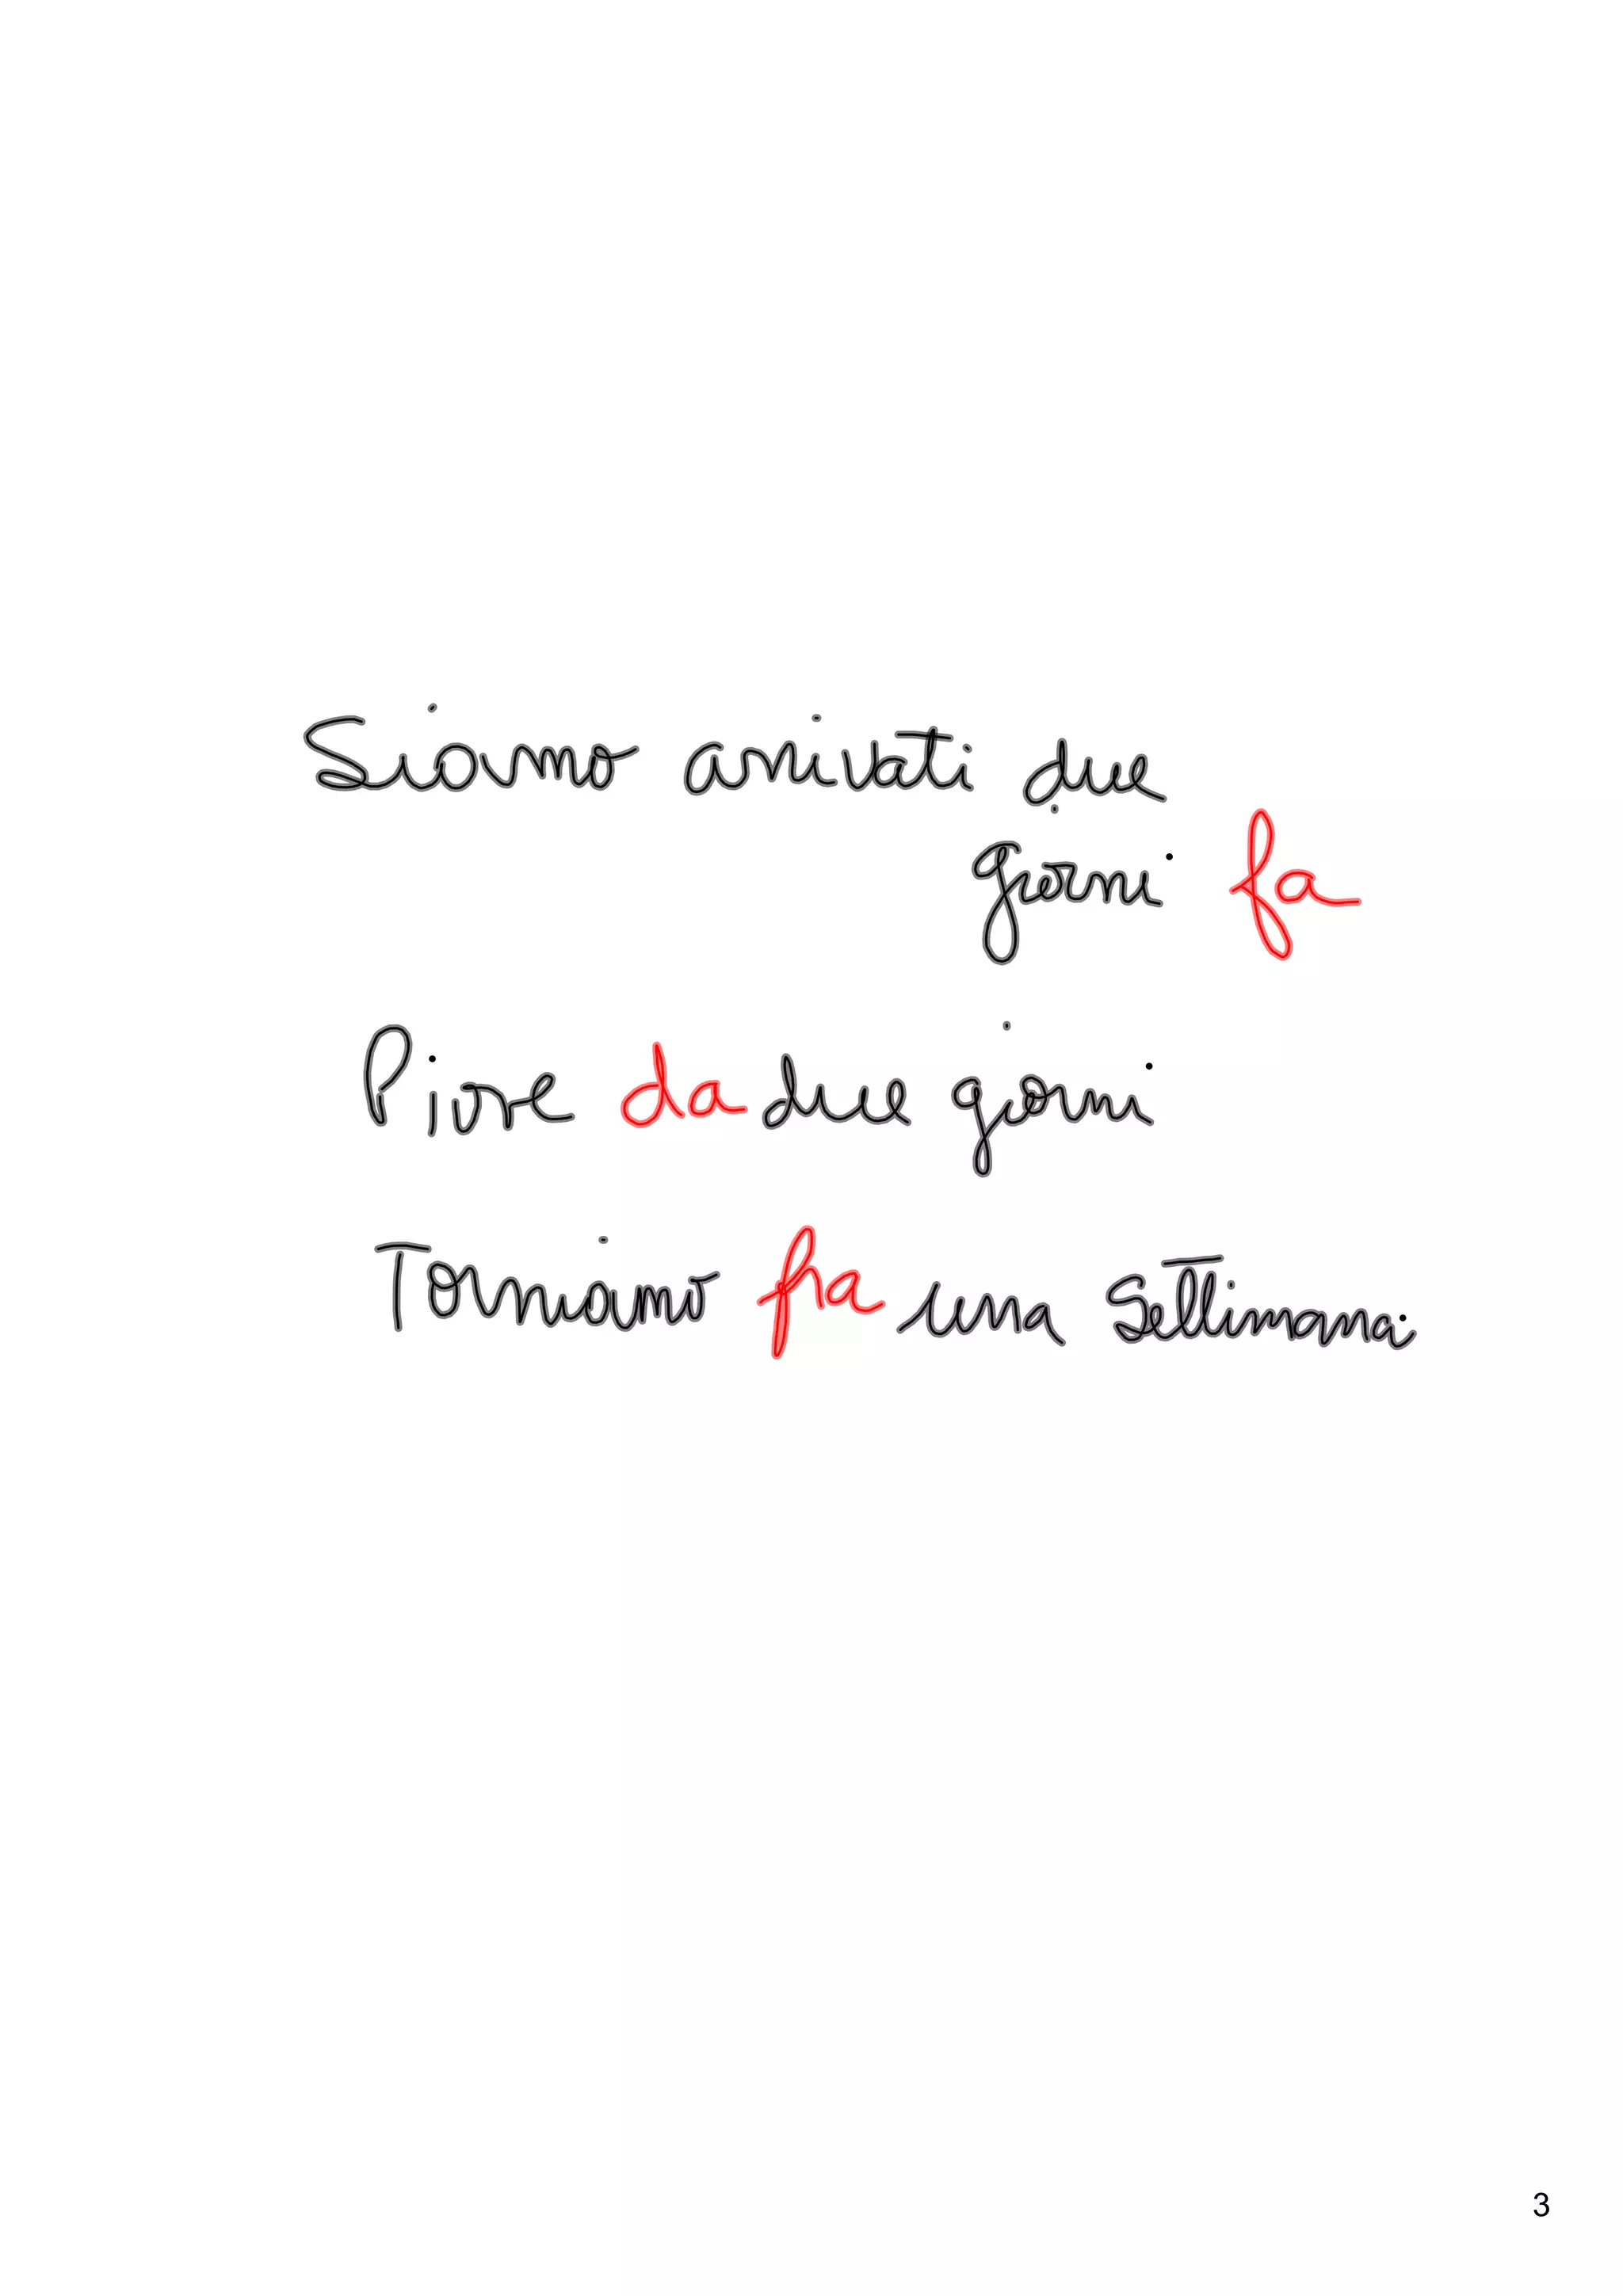 Siamo arrivati due
giorni fa
Piove da due giorni
Torniamo fra una settimana.
3